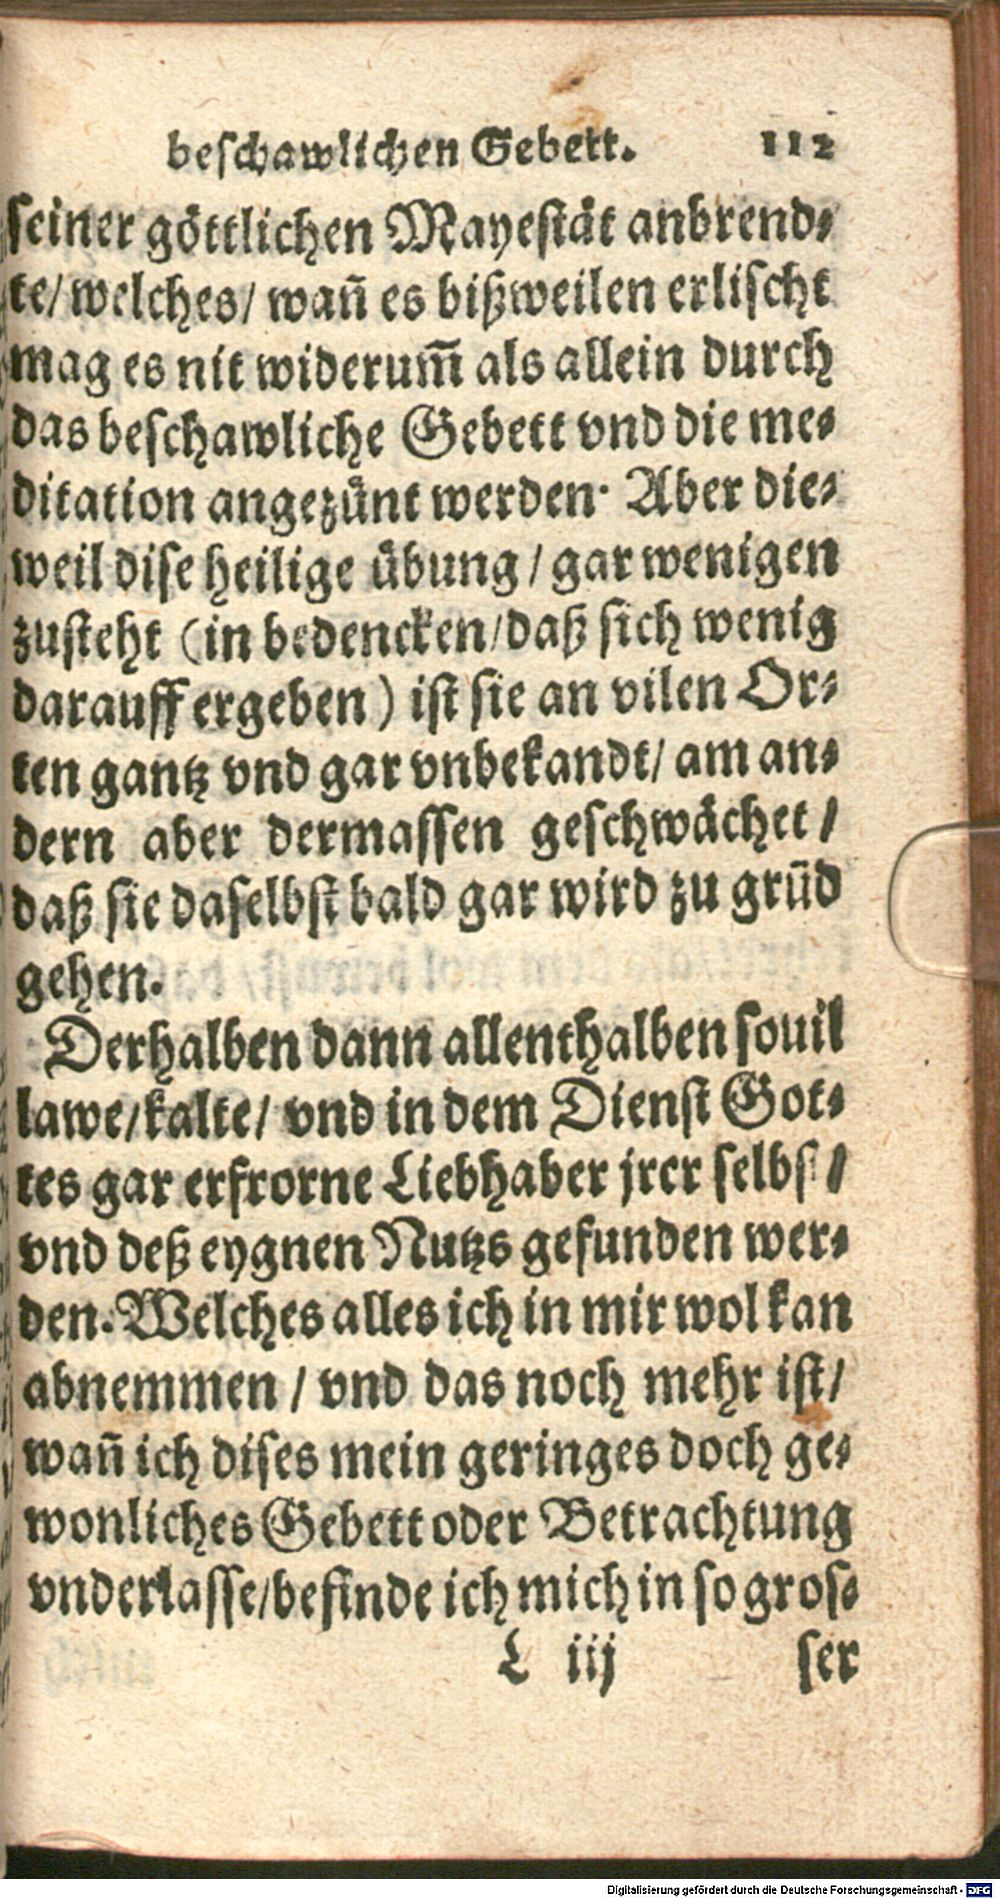 beschawlichen Gebett. 112
seiner göttlichen Mayestät anbrend⸗
te/ welches/ wañ es bißweilen erlischt
mag es nit widerum̃ als allein durch
das beschawliche Gebett vnd die me⸗
ditation angezünt werden· Aber die⸗
weil dise heilige übung / gar wenigen
zusteht (in bedencken/daß sich wenig
darauff ergeben) ist sie an vilen Or⸗
ten gantz vnd gar vnbekandt/ am an⸗
dern aber dermassen geschwächet /
daß sie daselbst bald gar wird zu grũd
gehen.
Derhalben dann allenthalben souil
lawe/kalte/ vnd in dem Dienst Got⸗
tes gar erfrorne Liebhaber jrer selbst /
vnd deß eygnen Nutzs gefunden wer⸗
den. Welches alles ich in mir wol kan
abnemmen / vnd das noch mehr ist/
wañ ich dises mein geringes doch ge⸗
wonliches Gebett oder Betrachtung
vnderlasse/befinde ich mich in so gros⸗
L iij ser
Digitalisierung gefördert durch die Deutsche Forschungsgemeinschaft - DFG